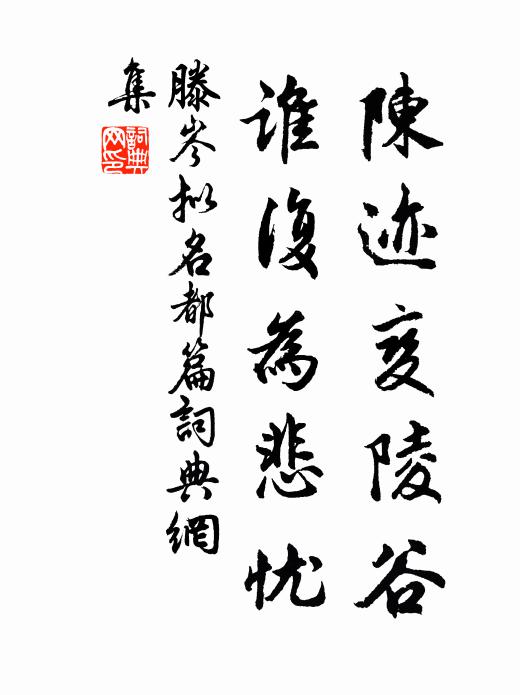 陳迹变陵谷
誰復為悲忧
滕岑拟名都篇詞典網
集
詞典网印